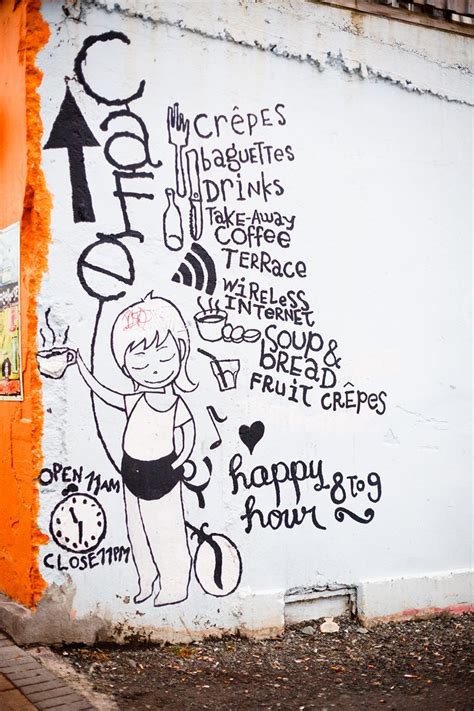 Café
CRÊPES
baguettes
DRINKS
TAKE-AWAY
COFFEE
TERRACE
WiReLESS
INTERNET
SOUP &
BREAD
FRUIT CRÊPES
happy
hour
8 TO 9
OPEN 11AM
CLOSE 11PM